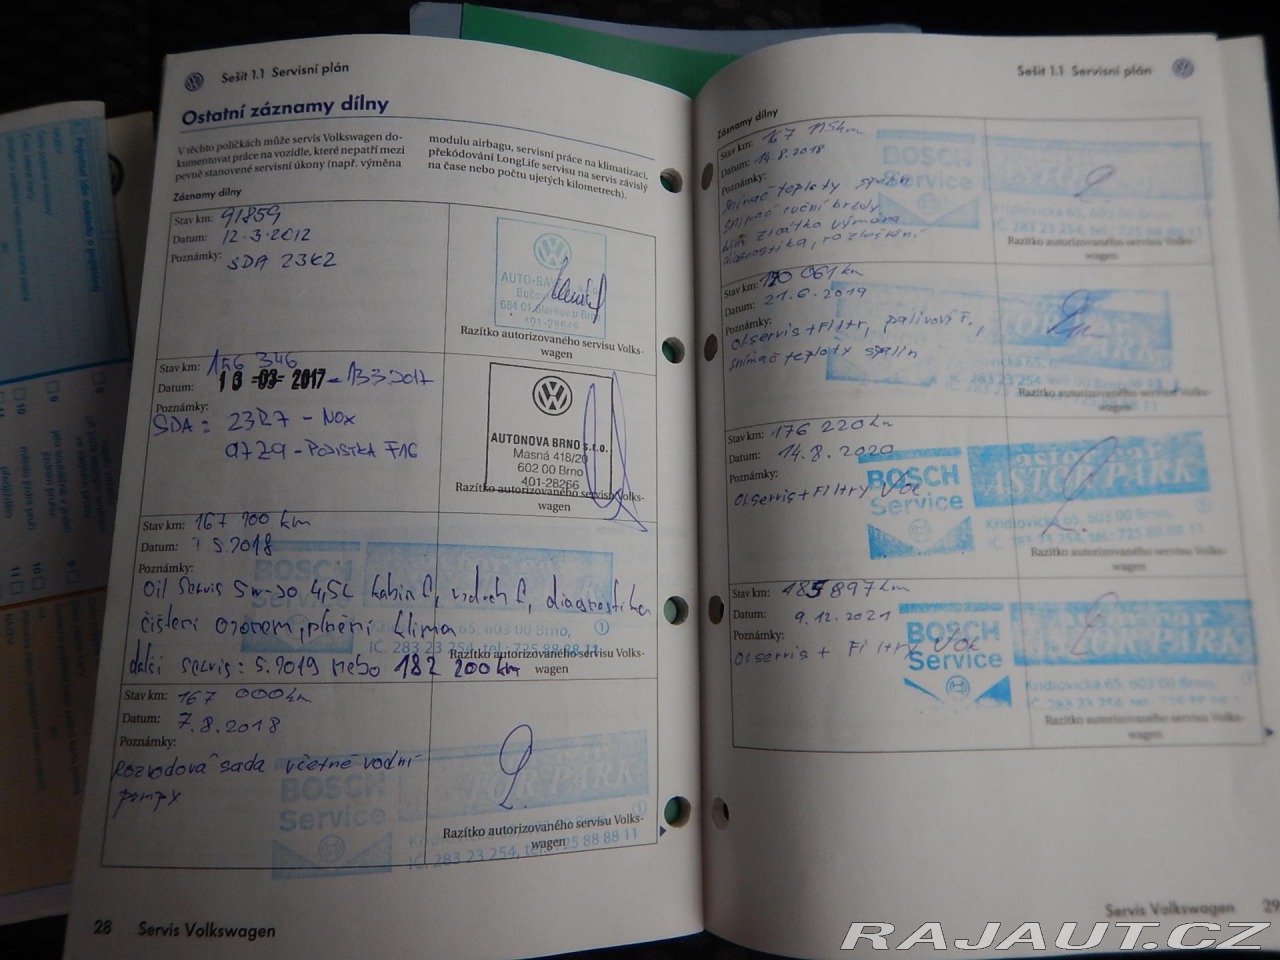 Sešit 1.1 Servisní plán
Ostatní záznamy dílny
V těchto políčkách může servis Volkswagen do-
kumentovat práce na vozidle, které nepatří mezi
pevně stanovené servisní úkony (např. výměna
modulu airbagu, servisní práce na klimatizaci,
překódování LongLife servisu na servis závislý
na čase nebo počtu ujetých kilometrech).
Záznamy dílny
Stav km: 91859
Datum: 12.3.2012
Poznámky:
SDA 23K2
Razítko autorizovaného servisu Volks-
wagen
Stav km: 156 346
Datum: 13-03-2017 - 13 3 2017
Poznámky:
SDA: 23R7 - NOX
9729 - POJISTKA F16
AUTONOVA BRNO s.r.o.
Masná 418/20
602 00 Brno
401-28266
Razítko autorizovaného servisu Volks-
wagen
Stav km: 167 100 km
Datum: 5.2018
Poznámky:
Oil servis 5w-30 4,5L kabin f, vzduch f, diagnostika
čištění ozonem, plnění klima
další servis: 5.2019 nebo 182 200 km
BOSCH
Razítko autorizovaného servisu Volks-
wagen
Stav km: 167 000 km
Datum: 7.8.2018
Poznámky:
Rozvodová sada včetně vodní
pumpy
BOSCH
Service
Razítko autorizovaného servisu Volks-
wagen
IČ. 283 23 254, tel.: 725 88 88 11
28 Servis Volkswagen
Sešit 1.1 Servisní plán
Záznamy dílny
Stav km: 167 115km
Datum: 14.8.2018
Poznámky:
Snímač teploty spalin
snímač ruční brzdy
zrcátko výměna
diagnostika,
BOSCH
Service
Razítko autorizovaného servisu Volks-
wagen
Stav km: 170 061 km
Datum: 21.6.2019
Poznámky:
Ol servis + Filtr, palivový F.,
snímač teploty spalin
Razítko autorizovaného servisu Volks-
wagen
Stav km: 176 220 km
Datum: 14.8.2020
Poznámky:
Ol servis + Filtry VOK
BOSCH
Service
ASTOR PARK
Křídlovická 65, 603 00 Brno,
Razítko autorizovaného servisu Volks-
wagen
Stav km: 185 897 km
Datum: 9.12.2021
Poznámky:
Ol servis + Filtry VOK
BOSCH
Service
Křídlovická 65, 603 00 Brno,
Razítko autorizovaného servisu Volks-
wagen
Servis Volkswagen 29
RAJAUT.CZ